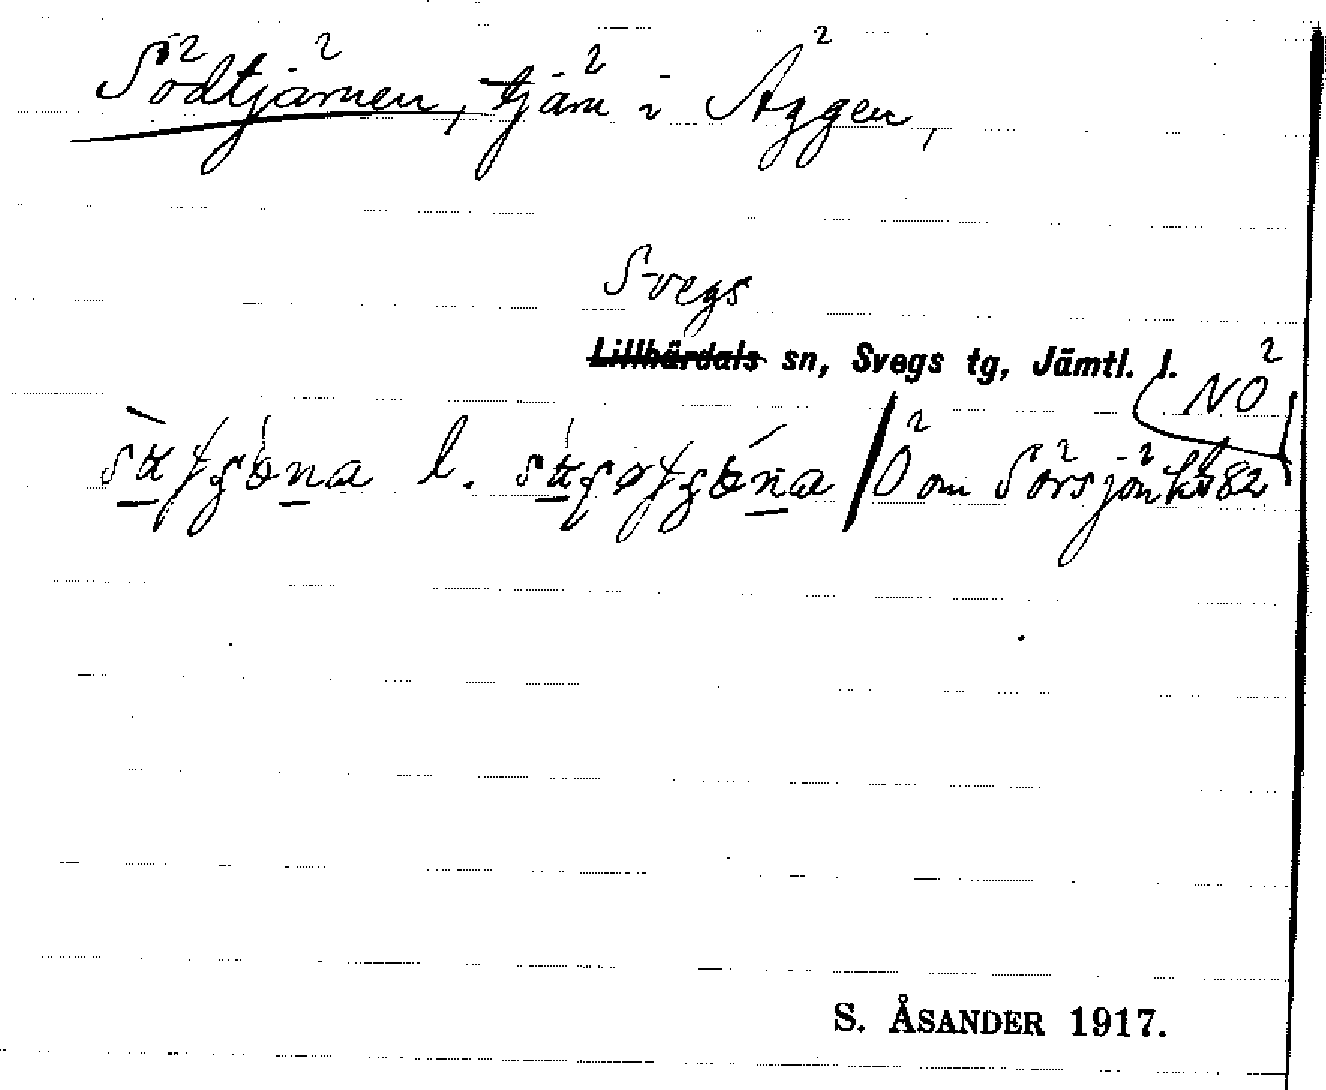 Södtjärnen, tjärn i Äggen,
Svegs
Lillhärdals sn, Svegs tg, Jämtl. l.
NÖ
l. Ö om Sörsjön 82
S. ÅSANDER 1917.